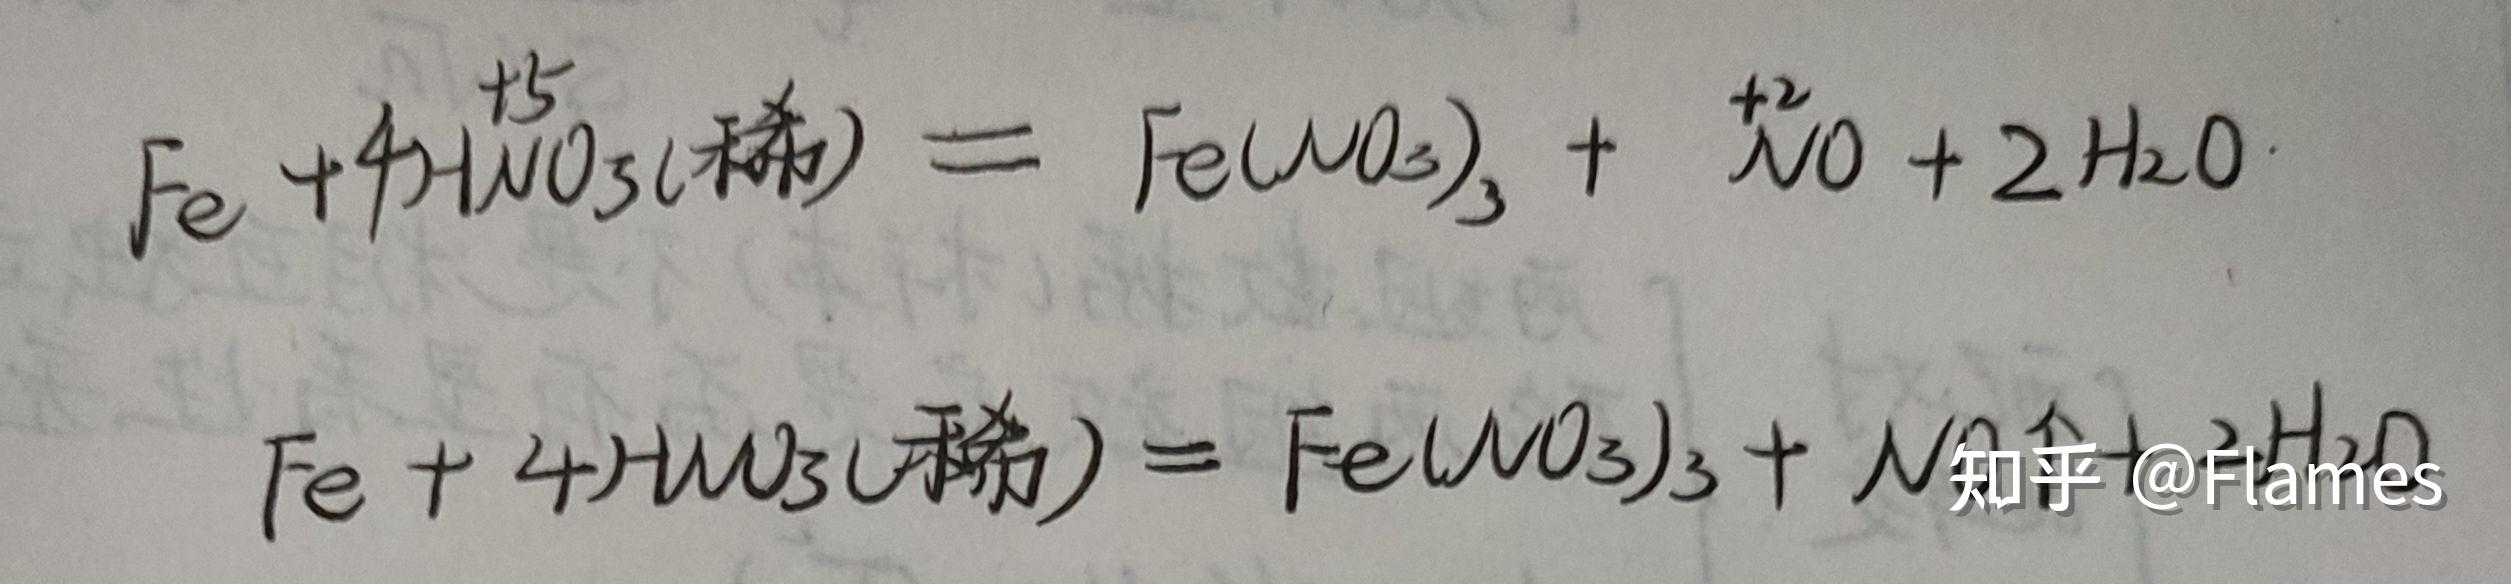 +5 +2
Fe + 4HNO3(稀) = Fe(NO3)3 + NO + 2H2O
Fe + 4HNO3(稀) = Fe(NO3)3 + NO↑ + 2H2O
知乎 @Flames